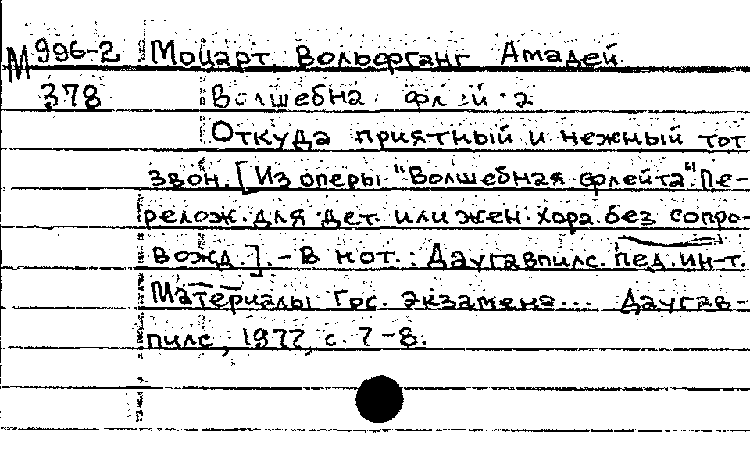 М 996-2 Моцарт, Вольфганг Амадей.
378 Волшебная флейта
Откуда приятный и нежный тот
звон. [Из оперы "Волшебная флейта". Пе-
релож. для дет. или жен. хора без сопро-
вожд.]. - В нот.: Даугавпилс. пед. ин-т.
Материалы Гос. экзамена... Даугав-
пилс, 1977, с. 7-8.